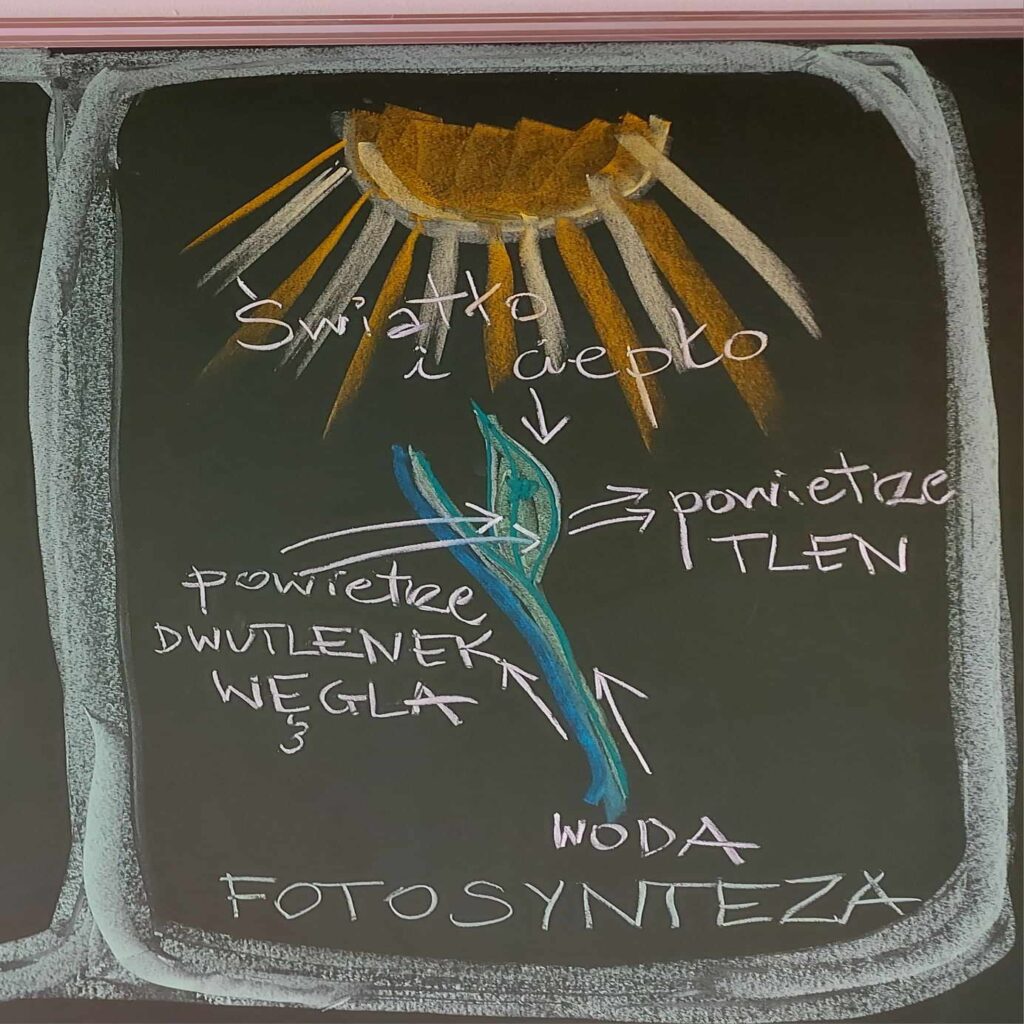 Światło
i ciepło
powietrze
TLEN
powietrze
DWUTLENEK
WĘGLA
WODA
FOTOSYNTEZA